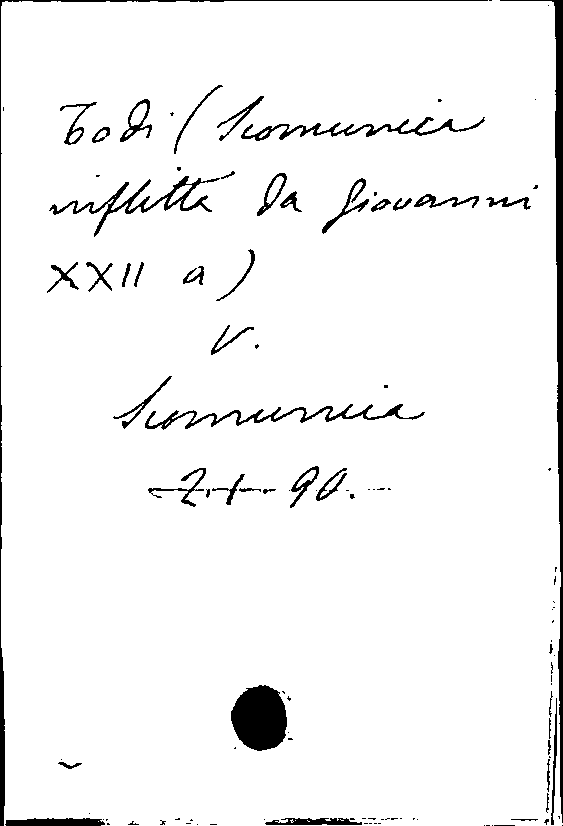 Todi (Scomunica
inflitta da Giovanni
XXII a)
V.
Scomunica
2. 1. 90.